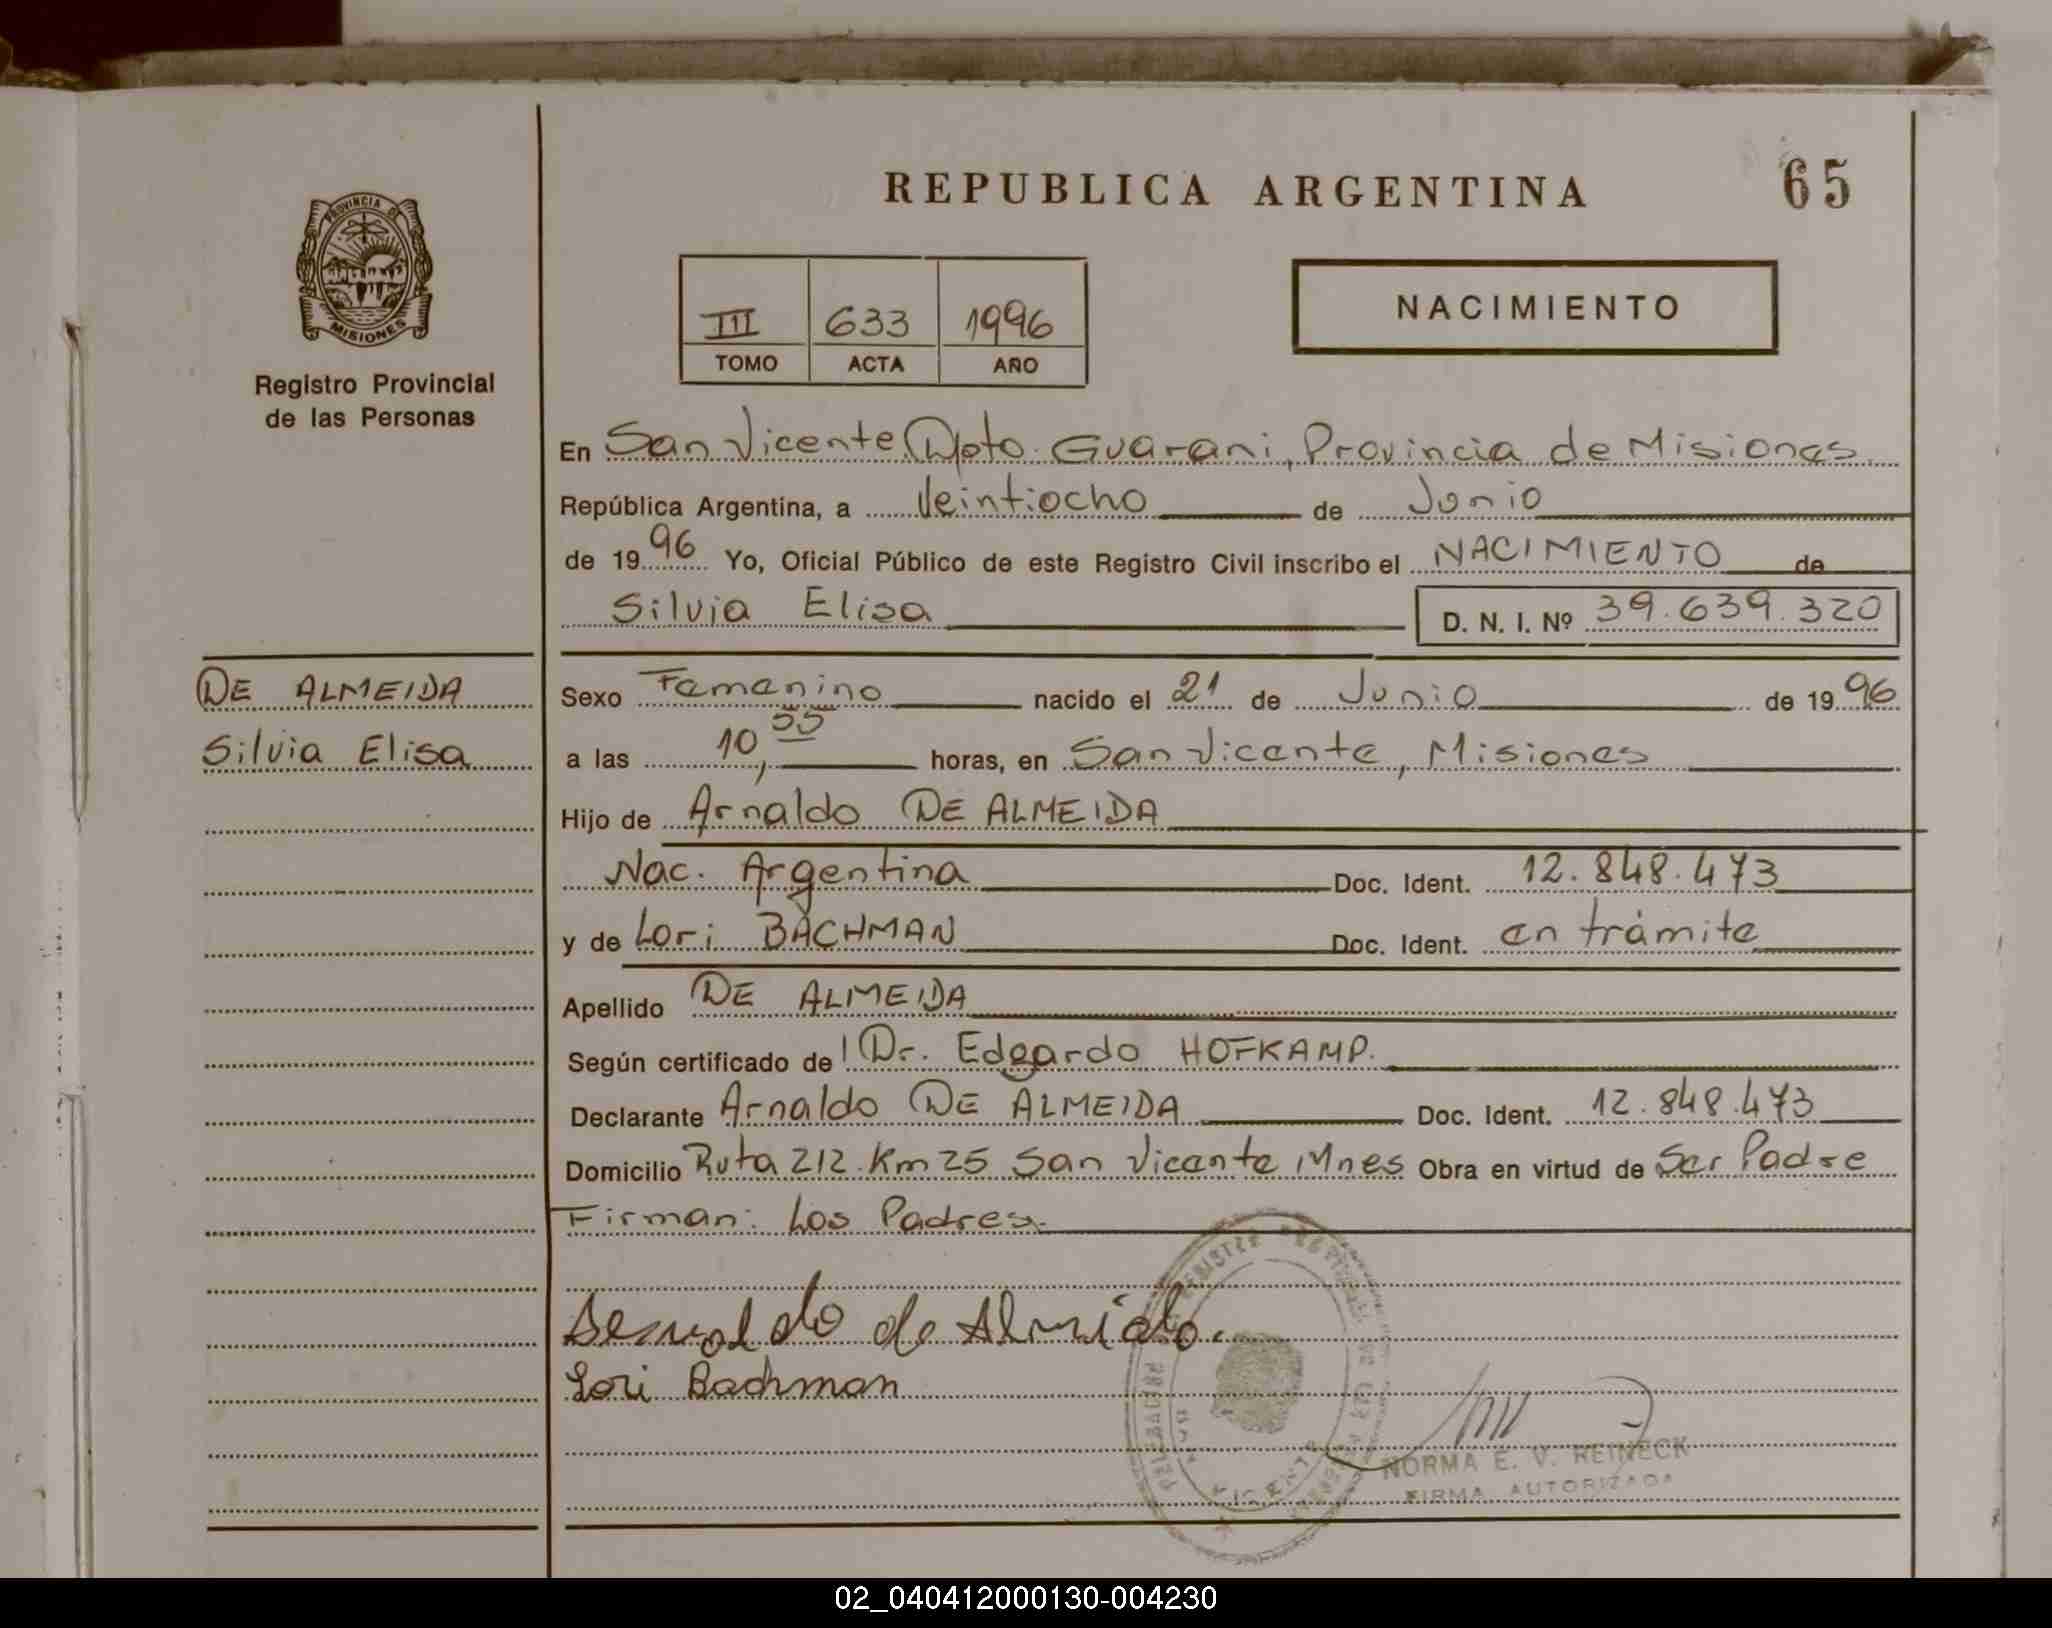 REPUBLICA ARGENTINA
65
PROVINCIA DE
MISIONES
Registro Provincial
de las Personas
III 633 1996
TOMO ACTA AÑO
NACIMIENTO
En San Vicente, Dpto. Guarani, Provincia de Misiones
República Argentina, a Veintiocho de Junio
de 1996 Yo, Oficial Público de este Registro Civil inscribo el NACIMIENTO de
Silvia Elisa D. N. I. Nº 39.639.320
DE ALMEIDA
Silvia Elisa
Sexo Femenino nacido el 21 de Junio de 1996
a las 10,55 horas, en San Vicente, Misiones
Hijo de Arnaldo DE ALMEIDA
Nac. Argentina Doc. Ident. 12.848.473
y de Lori BACHMAN Doc. Ident. en trámite
Apellido DE ALMEIDA
Según certificado de Dr. Edgardo HOFKAMP.
Declarante Arnaldo DE ALMEIDA Doc. Ident. 12.848.473
Domicilio Ruta 212 Km 25 San Vicente Mnes Obra en virtud de Ser Padre
Firman: Los Padres.
de
Lori Bachman
NORMA E. V. REINECK
FIRMA AUTORIZADA
02_040412000130-004230